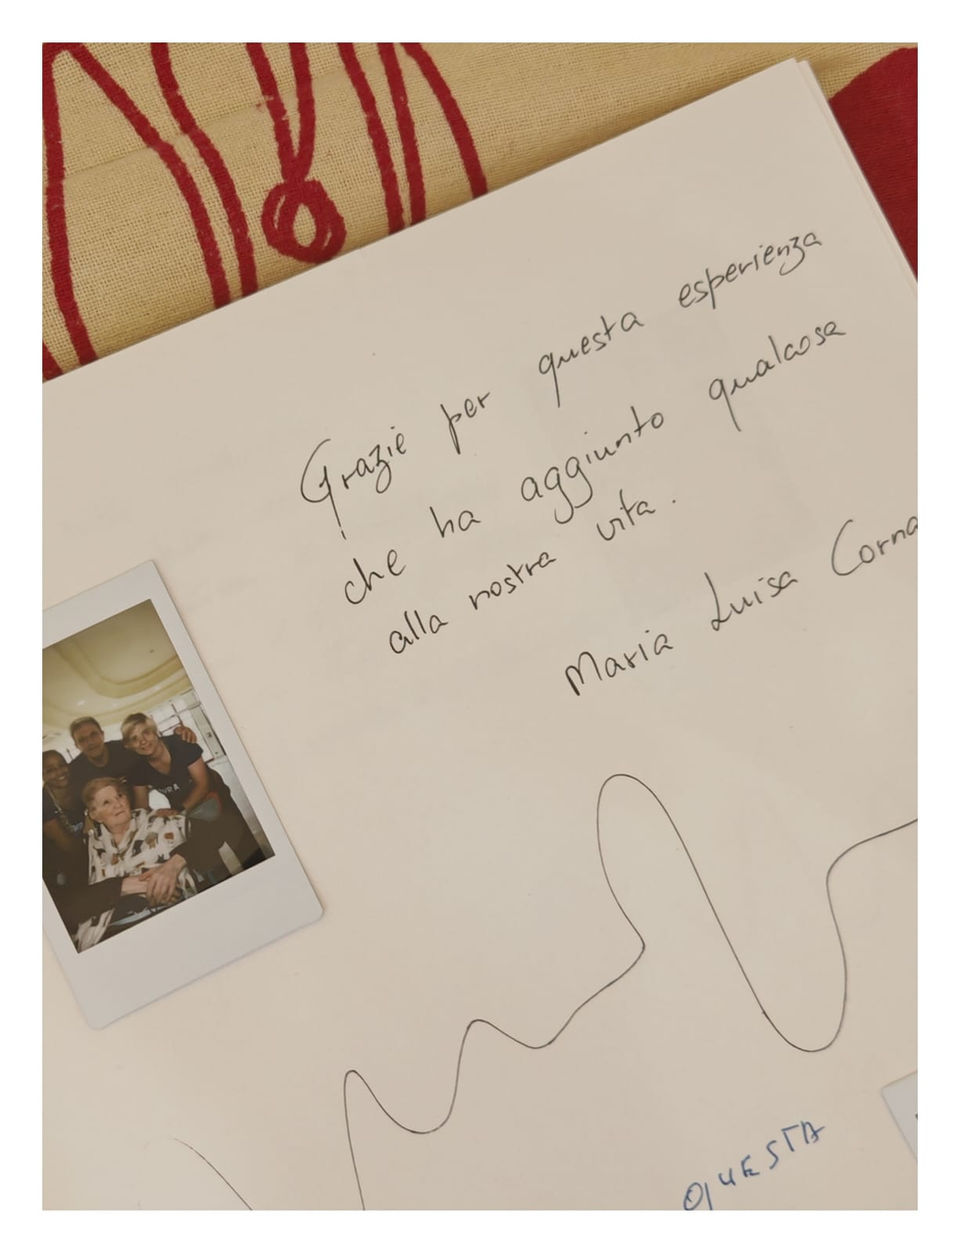 Grazie per questa esperienza
che ha aggiunto qualcosa
alla nostra vita.
Maria Luisa Corna
QUESTA